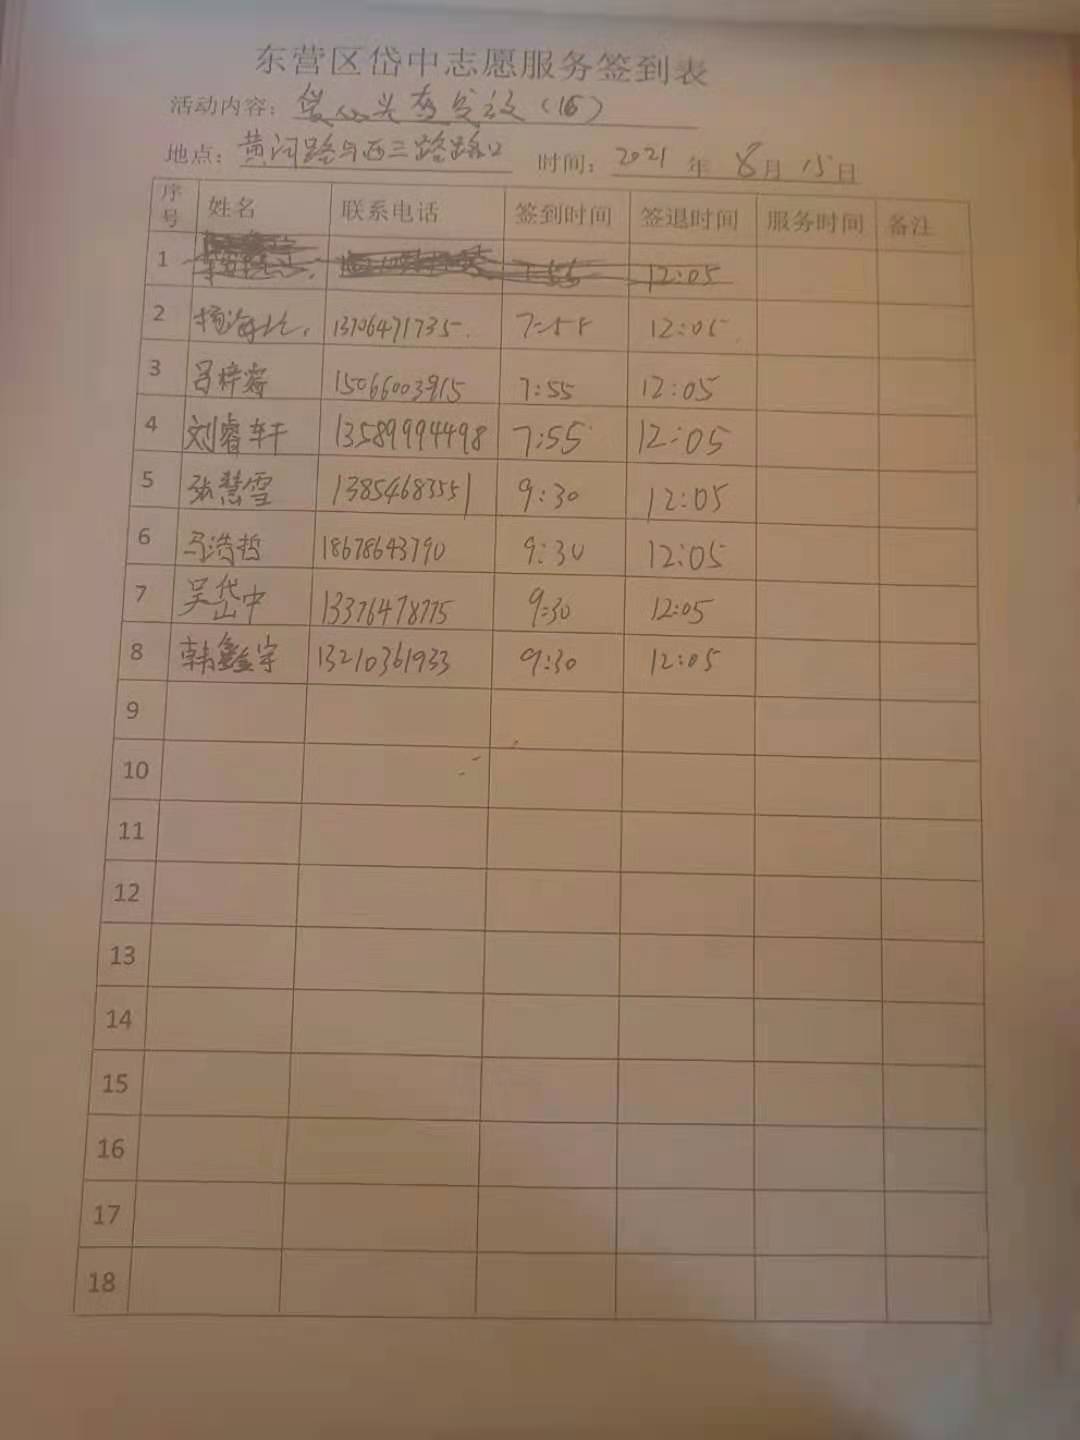 东营区岱中志愿服务签到表
活动内容： (15)
地点：黄河路与西三路路口 时间：2021年8月15日
序号 姓名 联系电话 签到时间 签退时间 服务时间 备注
1 7:55 12:05
2 13706471735. 7:55 12:05
3 吕梓睿 15066003915 7:55 12:05
4 刘睿轩 13589994498 7:55 12:05
5 张慧雪 13854683551 9:30 12:05
6 马浩哲 18678643790 9:30 12:05
7 吴岱中 13376478775 9:30 12:05
8 韩鑫宇 13210361933 9:30 12:05
9
10
11
12
13
14
15
16
17
18